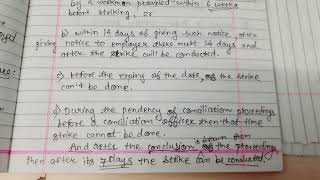 by a workman provided within 6 weeks
before striking, or
b) within 14 days of giving such notice, after
giving notice to employer there must 14 days and
after the strike will be conducted.
c) before the expiry of the date of the strike
can't be done.
d) During the pendency of conciliation proceedings
before a conciliation officer then that time
strike cannot be done.
And after the conclusion drawn from of the proceedings
then after its 7 days the strike can be conducted.